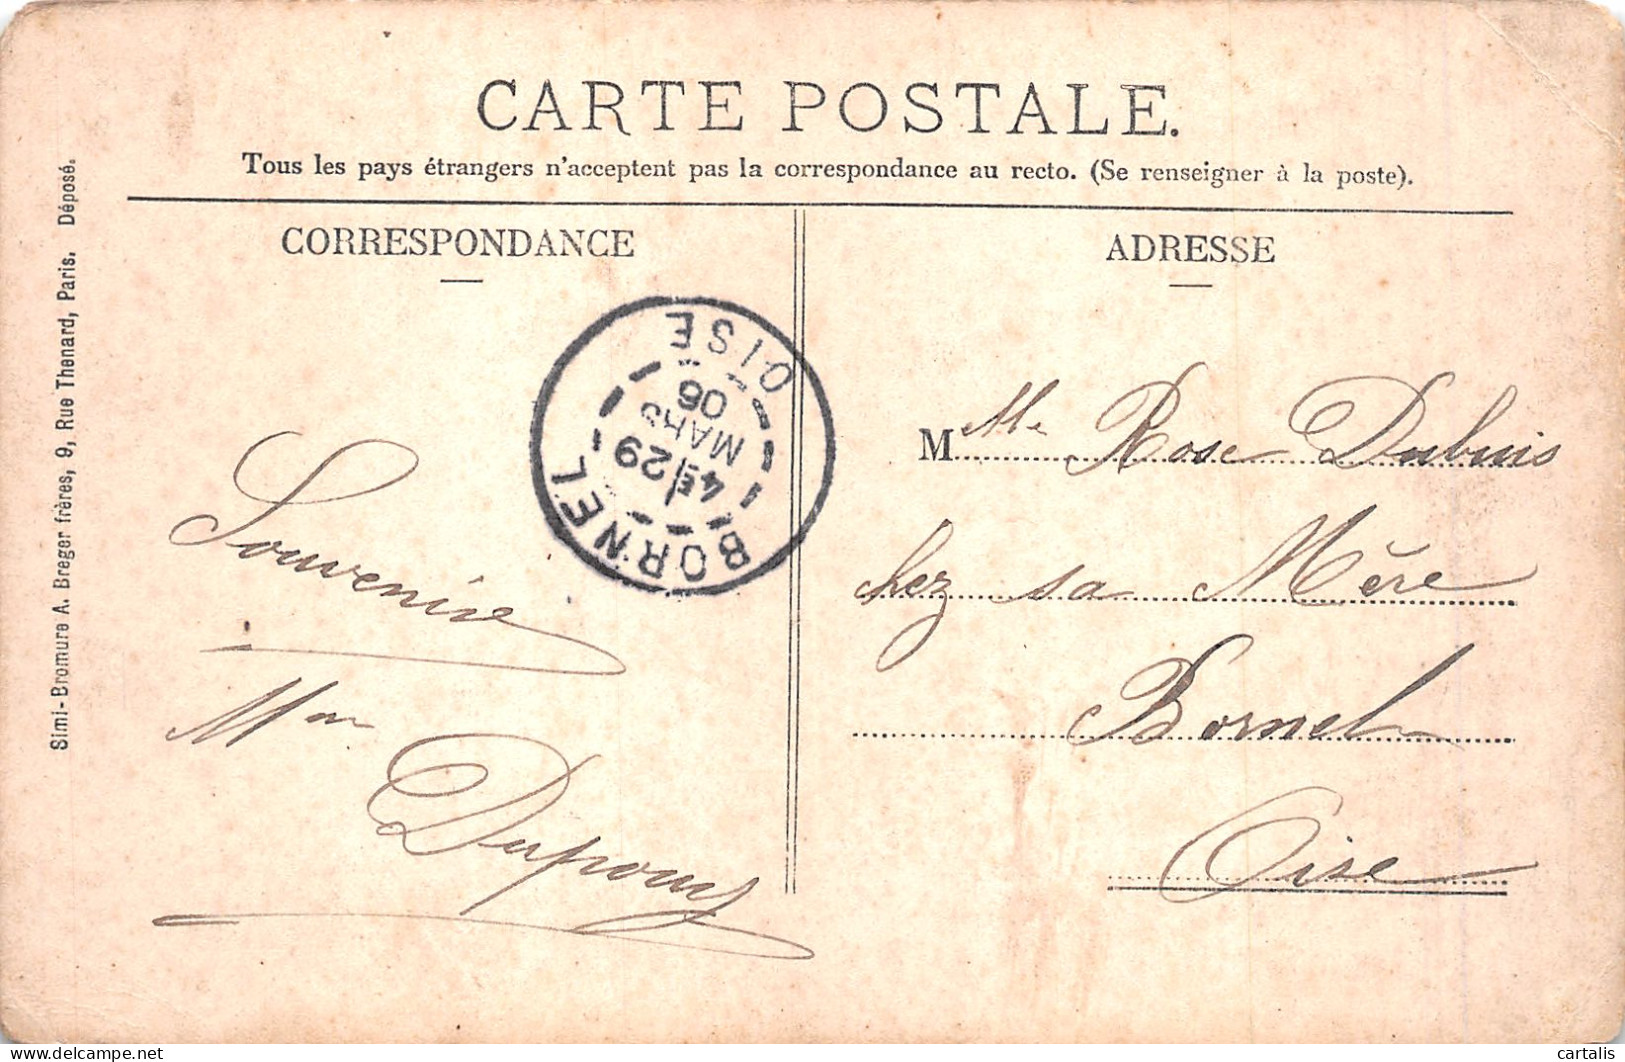 CARTE POSTALE.
Tous les pays étrangers n'acceptent pas la correspondance au recto. (Se renseigner à la poste).
Simi-Bromure A. Breger frères, 9, Rue Thenard, Paris. Déposé.
CORRESPONDANCE
Souvenir
Mme
BORNEL
4E/29
MARS
06
OISE
ADRESSE
Mlle Rose Dubuis
chez sa Mère
Bornel
Oise
delcampe.net
cartalis